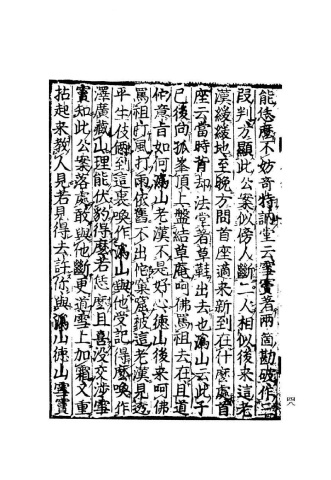 能恁麼不妨奇特訥堂云雪竇著兩箇勘破作三
段判方顯此公案似傍人斷二人相似後來這老
漢緩緩地至晚方問首座適來新到在什麼處首
座云當時背却法堂著草鞋出去也潙山云此子
已後向孤峯頂上盤結草庵呵佛罵祖去在且道
他意旨如何潙山老漢不是好心德山後來呵佛
罵祖打風打雨依舊不出他窠窟被這老漢見透
平生伎倆到這裏喚作潙山與他受記得麼喚作
澤廣藏山理能伏豹得麼若恁麼且喜沒交涉雪
竇知此公案落處敢與他斷更道雪上加霜又重
拈起來教人見若見得去許你與潙山德山雪竇
四八